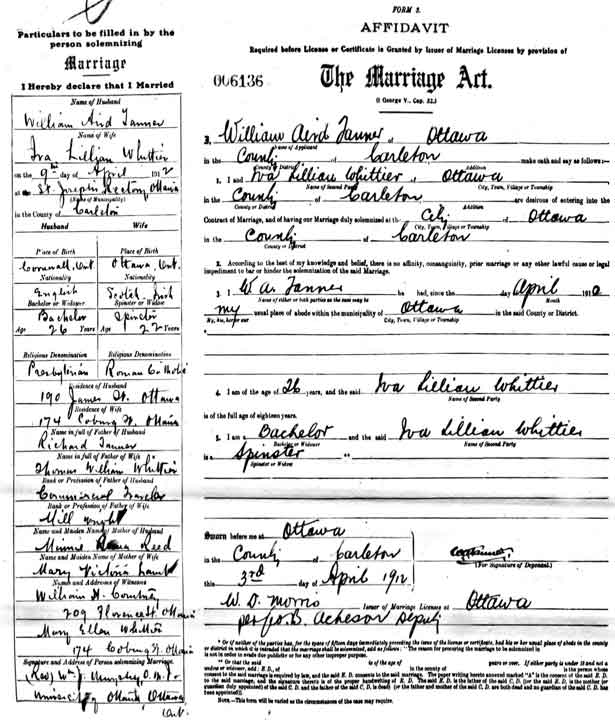 Particulars to be filled in by the
person solemnizing
Marriage
I Hereby declare that I Married
Name of Husband
William Aird Tanner
Name of Wife
Iva Lillian Whittier
on the 9th day of April 1912
at St. Joseph's Rectory, Ottawa
(Name of Municipality)
in the County of Carleton
Husband Wife
Place of Birth Place of Birth
Cornwall, Ont Ottawa, Ont.
Nationality Nationality
English Scotch Irish
Bachelor or Widower Spinster or Widow
Bachelor Spinster
Age 26 Years Age 22 Years
Religious Denomination Religious Denomination
Presbyterian Roman Catholic
Residence of Husband
190 James St. Ottawa
Residence of Wife
174 Coburg St. Ottawa
Name in full of Father of Husband
Richard Tanner
Name in full of Father of Wife
Thomas William Whittier
Rank or Profession of Father of Husband
Commercial Traveler
Rank or Profession of Father of Wife
Mill wright
Name and Maiden Name of Mother of Husband
Minnie Reed
Name and Maiden Name of Mother of Wife
Mary Victoria
Names and Addresses of Witnesses
William H.
209 Florence St Ottawa
Mary Ellen Whittier
174 Coburg St. Ottawa
Signature and Address of Person solemnizing Marriage.
(Rev) Wm J. Murphy, O.M.I.
University Ottawa, Ottawa
Ont.
FORM 3.
AFFIDAVIT
Required before License or Certificate is Granted by Issuer of Marriage Licenses by provision of
006136 The Marriage Act.
(1 George V., Cap. 32.)
I, William Aird Tanner of Ottawa
Name of Applicant Addition
in the County of Carleton make oath and say as follows:—
County or District
1. I and Iva Lillian Whittier of Ottawa
Name of Second Party City, Town, Village or Township
in the County of Carleton are desirous of entering into the
County or District Addition
Contract of Marriage, and of having our Marriage duly solemnized at the City of Ottawa
City, Town, Village or Township
in the County of Carleton
County or District
2. According to the best of my knowledge and belief, there is no affinity, consanguinity, prior marriage or any other lawful cause or legal
impediment to bar or hinder the solemnization of the said Marriage.
3. I W A Tanner had, since the day April 191
Name of either or both parties as the case may be Month
my usual place of abode within the municipality of Ottawa in the said County or District.
My, his, her or our City, Town, Village or Township
4. I am of the age of 26 years, and the said Iva Lillian Whittier
Name of Second Party
is of the full age of eighteen years.
5. I am a Bachelor and the said Iva Lillian Whittier
Bachelor or Widower Name of Second Party
is a Spinster
Spinster or Widow
Sworn before me at Ottawa
in the County of Carleton
(For Signature of Deponent.)
this 3rd day of April 1912
W. D. Morris Issuer of Marriage License at Ottawa
per Jo. B. Acheson Deputy
* Or if neither of the parties has, for the space of fifteen days immediately preceding the issue of the license or certificate, had his or her usual place of abode in the county
or district in which it is intended that the marriage shall be solemnized, add as follows: "The reason for procuring the marriage to be solemnized in
is not in order to evade due publicity or for any other improper purpose.
** Or that the said is of the age of years or over. If either party is under 18 and not a
widow or widower, add, E.D., of in the county of is the person whose
consent to the said marriage is required by law, and the said E. D. consents to the said marriage. The paper writing hereto annexed marked "A" is the consent of the said E. D.
to the said marriage, and the signature thereto is of the proper handwriting of E. D. The said E. D. is the father of the said C. D. (or the said E. D. is the mother of the said C. D.
guardian duly appointed) of the said C. D. and the father of the said C. D. is dead) (or the father and mother of the said C. D. are both dead and no guardian of the said C. D. has
been appointed).
NOTE.—This form will be varied as the circumstances of the case may require.